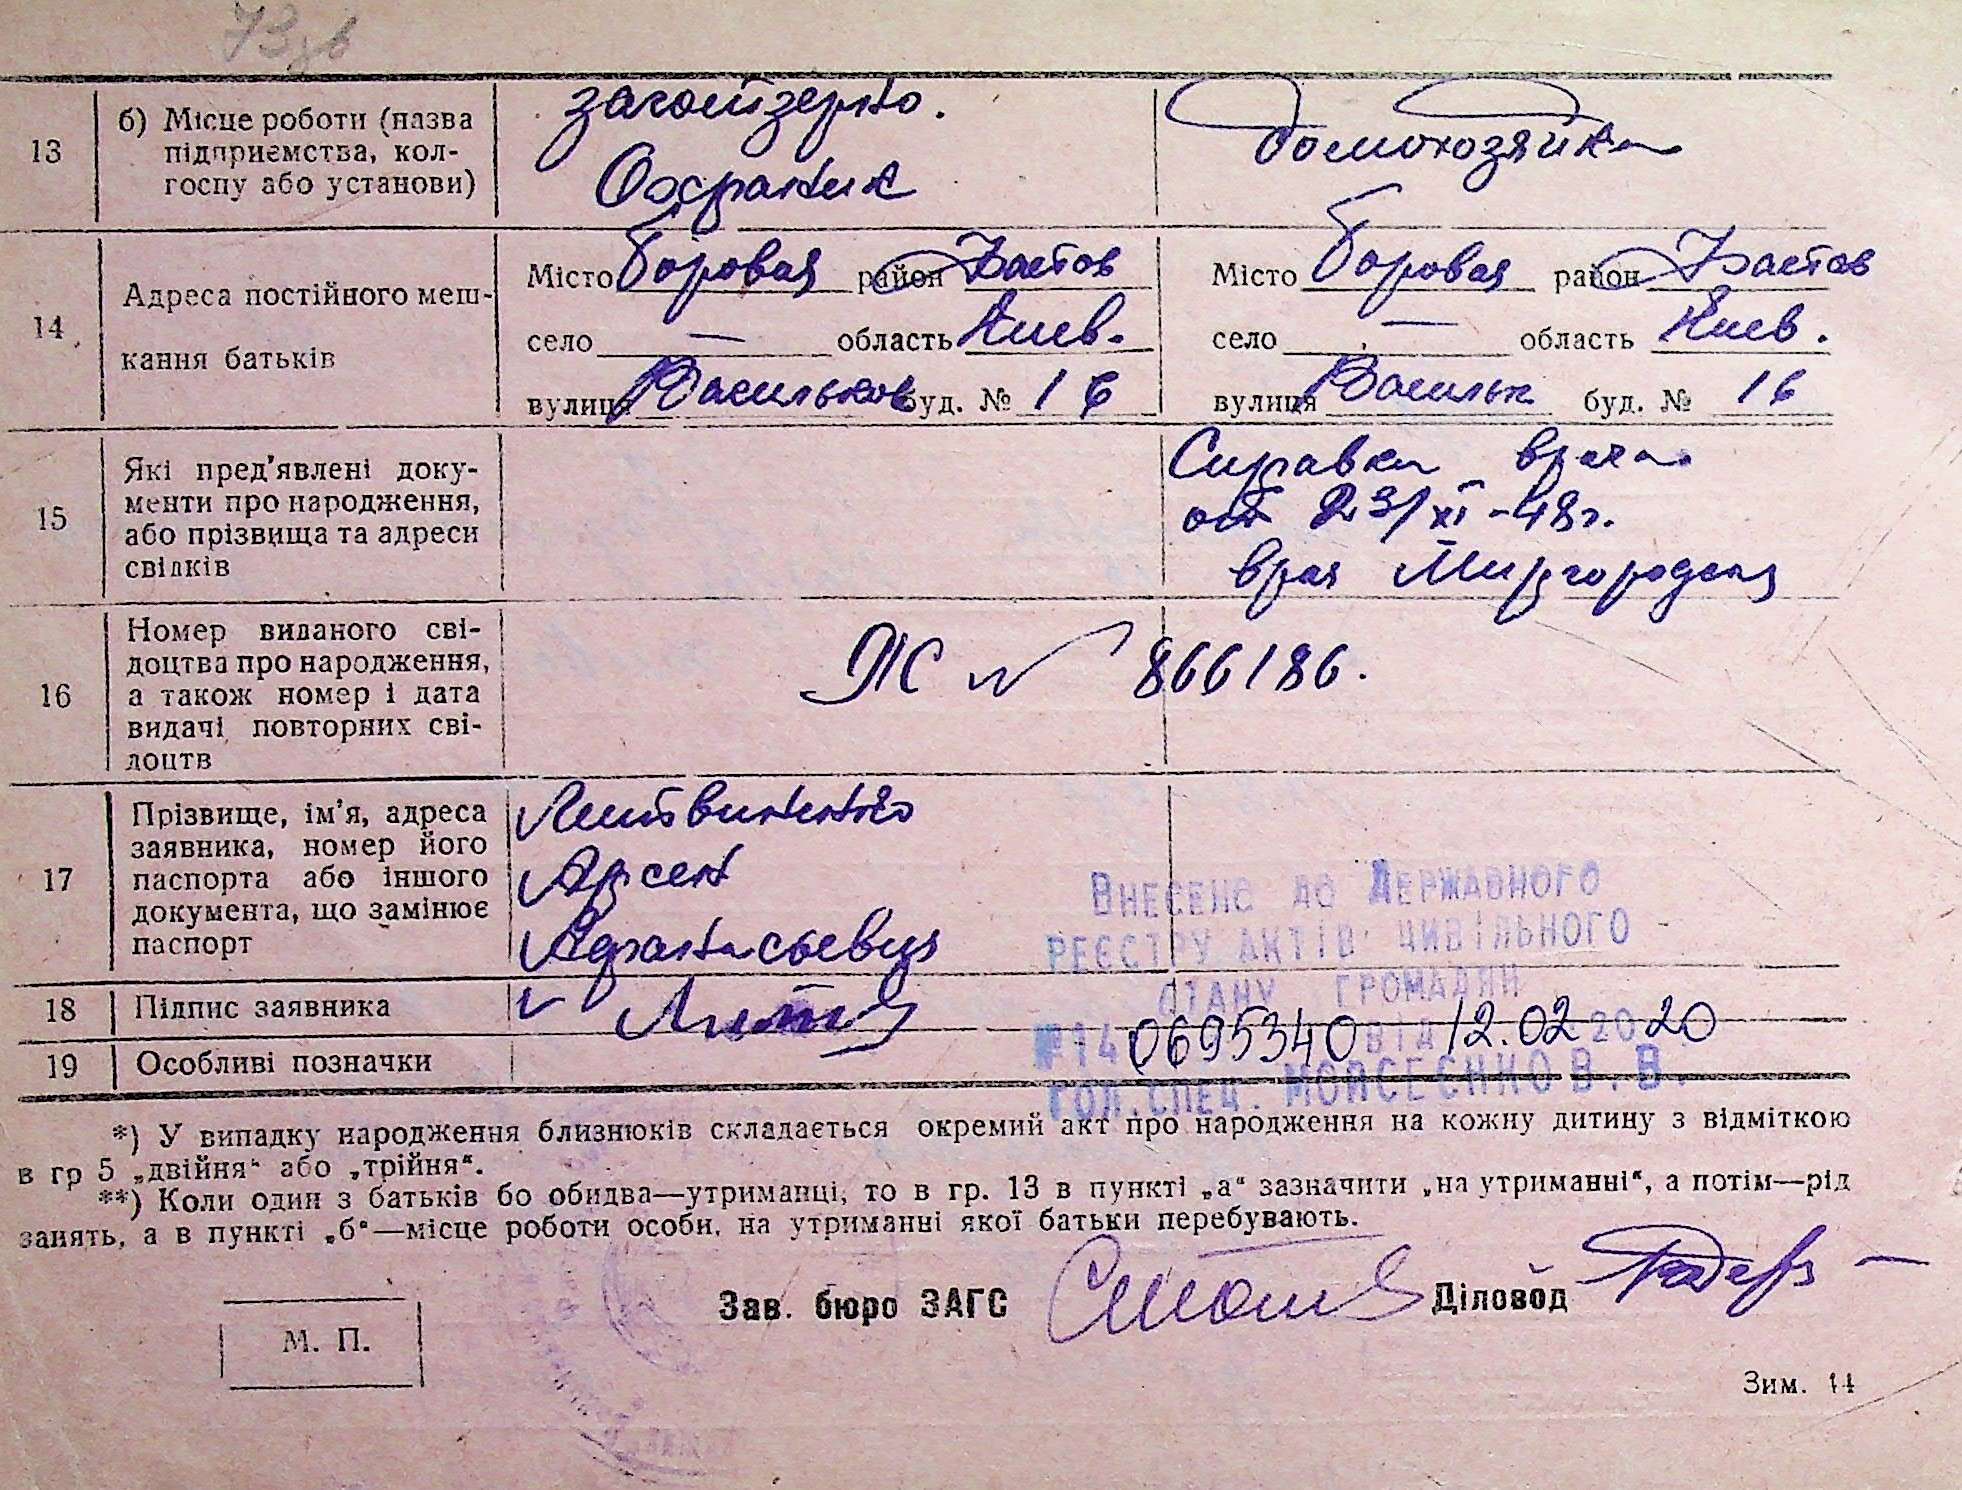 73 зв
13
б) Місце роботи (назва
підприємства, кол-
госпу або установи)
заготзерно.
Охраник
домохозяйка
14
Адреса постійного меш-
кання батьків
Місто Боровая район Фастов
село — область Киев.
вулиця Васильков буд. № 16
Місто Боровая район Фастов
село — область Киев.
вулиця Васильк буд. № 16
15
Які пред’явлені доку-
менти про народження,
або прізвища та адреси
свідків
Справка врача
от 23/XI-48г.
врач Миргородская
16
Номер виданого сві-
доцтва про народження,
а також номер і дата
видачі повторних сві-
доцтв
ЯЖ № 866186.
17
Прізвище, ім’я, адреса
заявника, номер його
паспорта або іншого
документа, що замінює
паспорт
Литвиненко
Арсен
Афанасьевич
18
Підпис заявника
Литв
19
Особливі позначки
Внесено до Державного
реєстру актів цивільного
стану громадян
№ 14 0695340 від 12.02 2020
Гол. спец. Мойсеєнко В. В.
*) У випадку народження близнюків складається окремий акт про народження на кожну дитину з відміткою
в гр 5 „двійня“ або „трійня“.
**) Коли один з батьків бо обидва—утриманці, то в гр. 13 в пункті „а“ зазначити „на утриманні“, а потім—рід
занять, а в пункті „б“—місце роботи особи, на утриманні якої батьки перебувають.
Зав. бюро ЗАГС
Діловод
М. П.
Зим. 14